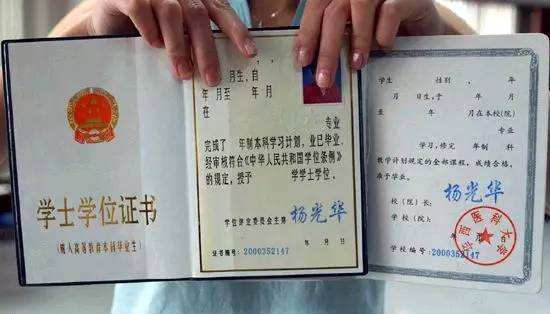 学士学位证书
(成人高等教育本科毕业生)
月生,自
年 月至 年 月
在
专业
完成了 年制本科学习计划,业已毕业,
经审核符合《中华人民共和国学位条例》
的规定,授予 学学士学位。
学位评定委员会主席 杨光华
年 月 日
证书编号: 2000352147
学生 性别 , 年
月 日生,于 年
月在本校(院)
专业
学习,修完 年 制 科
教学计划规定的全部课程,成绩合格,
准予毕业。
校(院)长: 杨光华
学校(院):
年 月 日
学校编号: 2000352147